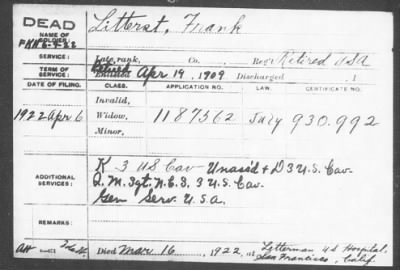 DEAD
NAME OF SOLDIER: Litterst, Frank
SERVICE: Late rank, Co. , Reg't Retired USA
TERM OF SERVICE: Enlisted Retired Apr 19, 1909 Discharged , 1
DATE OF FILING. CLASS. APPLICATION NO. LAW. CERTIFICATE NO.
Invalid,
1922 Apr 6 Widow, 1187562 930.992
Minor,
ADDITIONAL SERVICES: K 3 US Cav Unas'd + D 3 U.S. Cav.
Q.M. Sgt. N.C.S. 3 U.S. Cav.
Gen Serv. U.S.A.
REMARKS:
Died Mar 16, 1922, at Letterman US Hospital,
San Francisco, Calif.